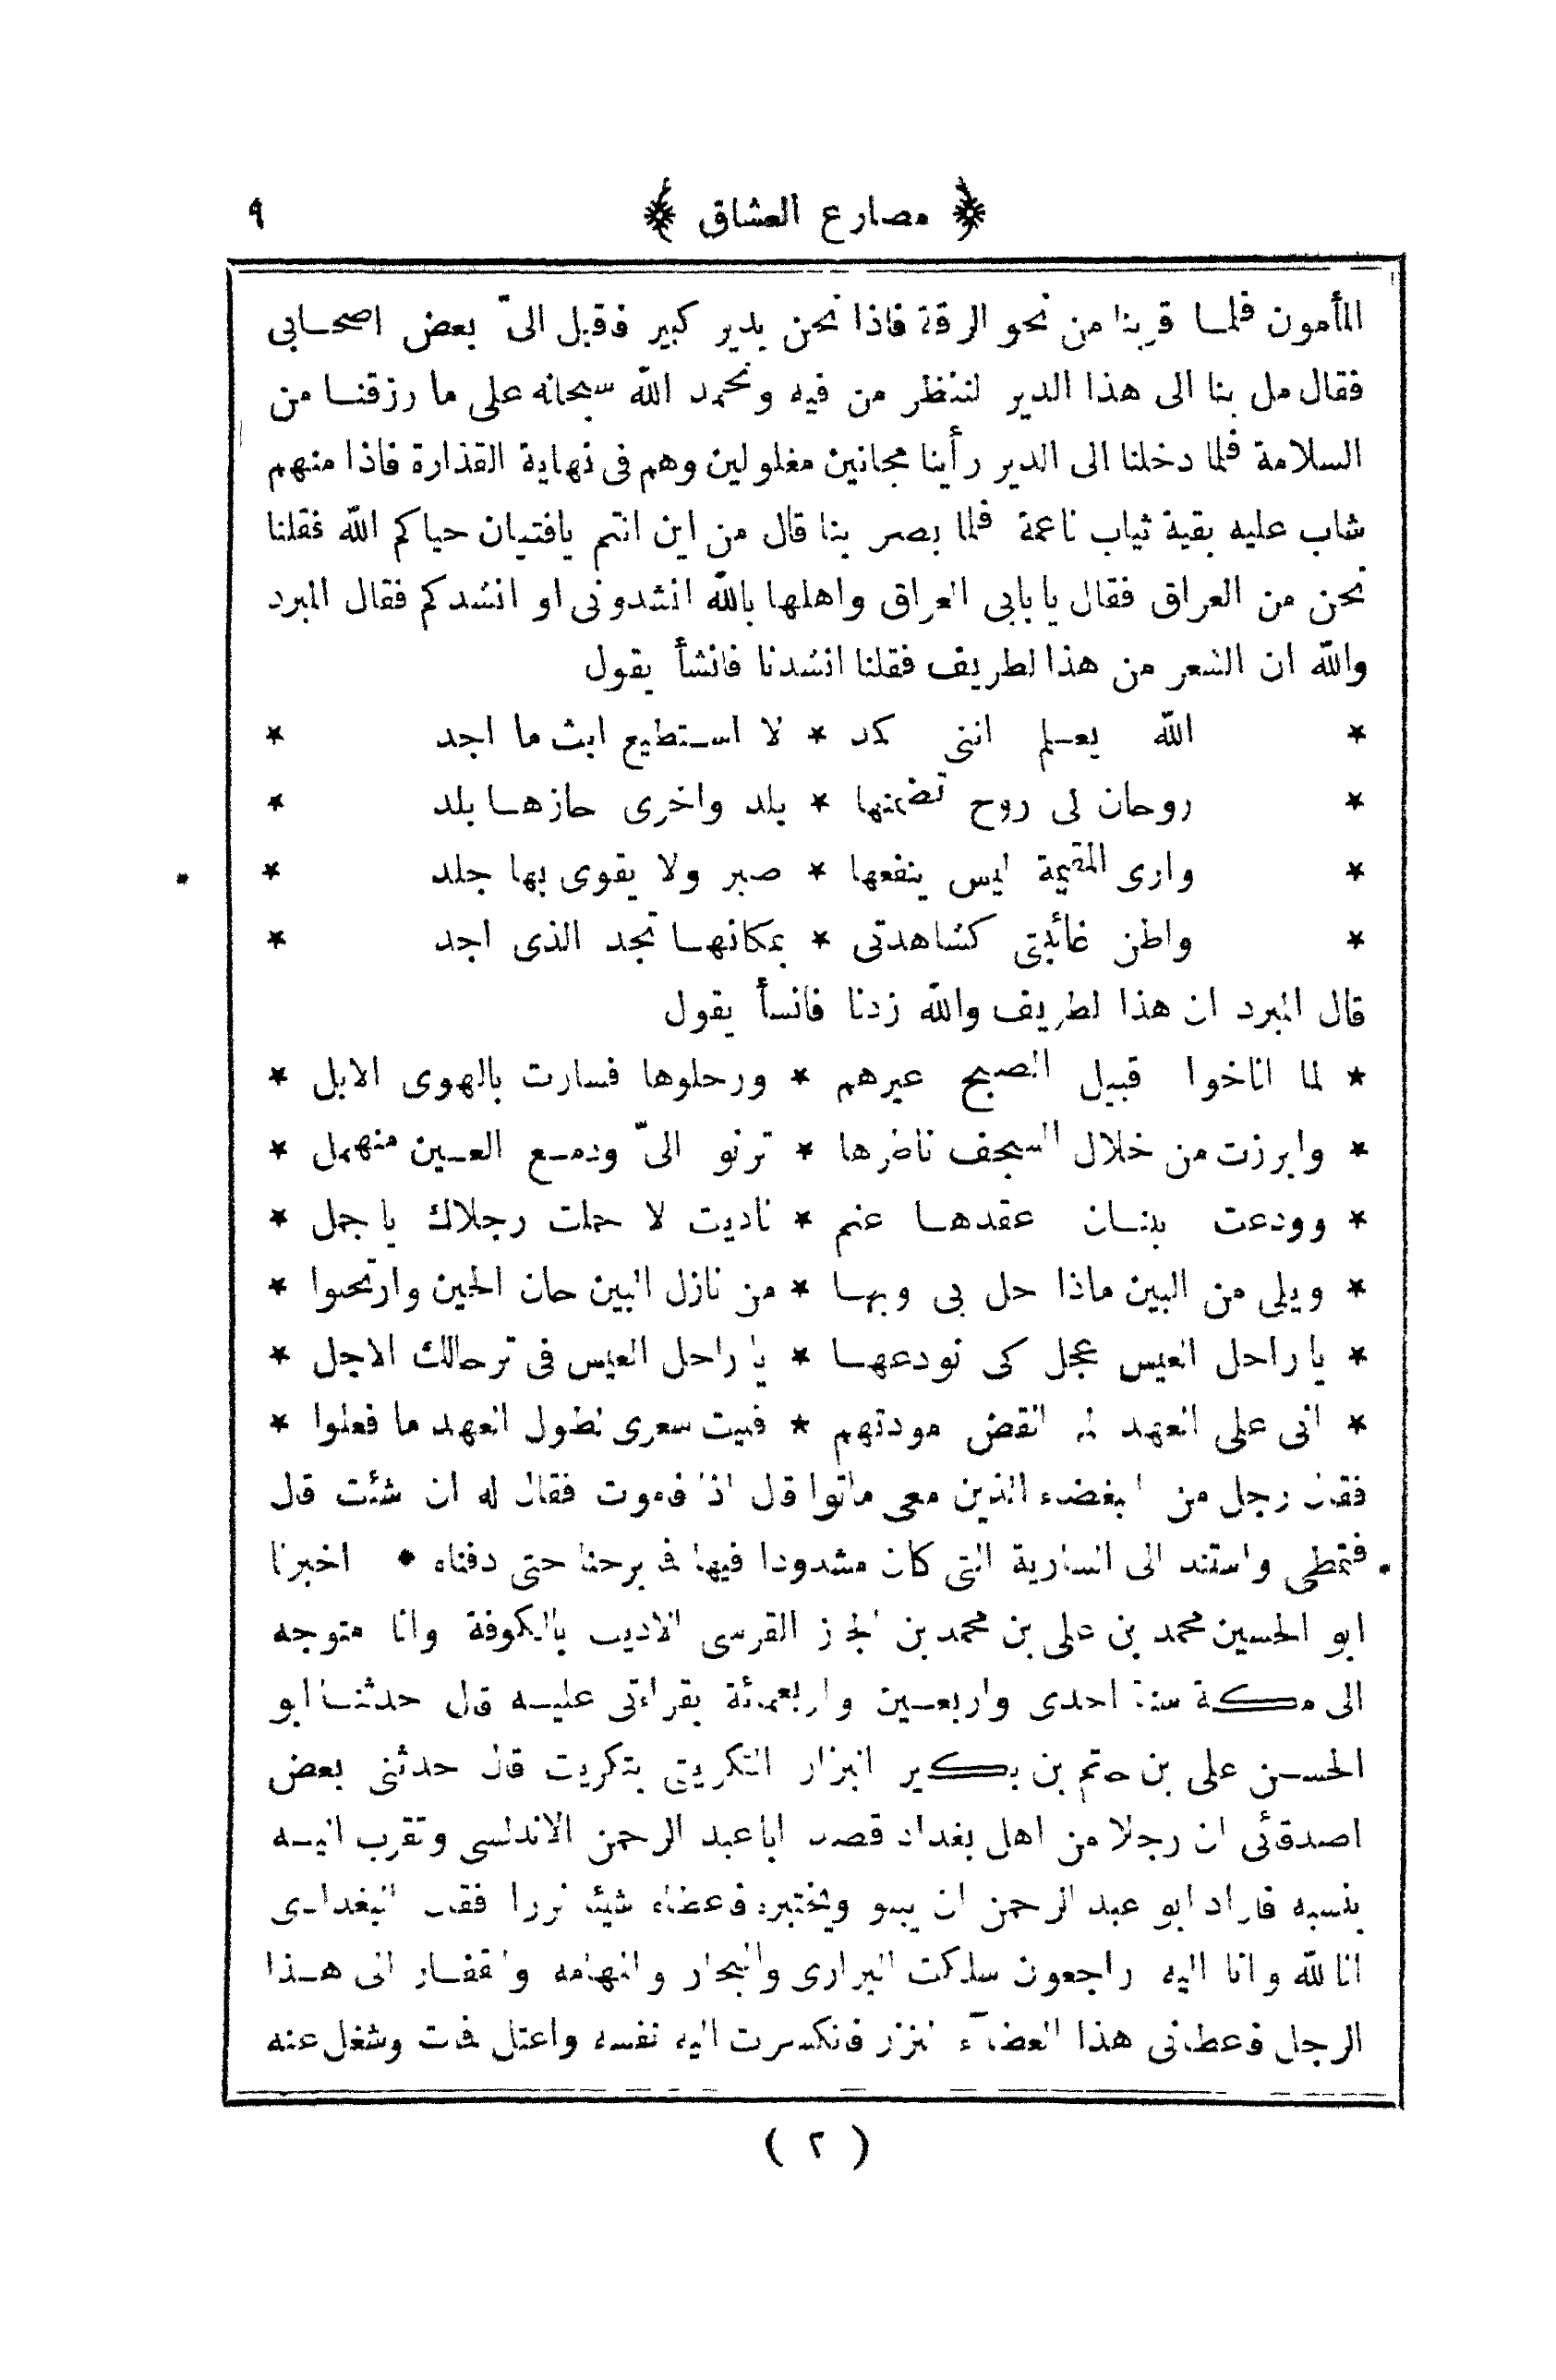 ﴿ مصارع العشاق ﴾ ٩
المأمون فلمـا قربنا من نحو الرقة فاذا نحن بدير كبير فاقبل الىّ بعض اصحـابى
فقال مل بنا الى هذا الدير لننظر من فيه ونحمد الله سبحانه على ما رزقنـا من
السلامة فلما دخلنا الى الدير رأينا مجانين مغلولين وهم فى نهاية القذارة فاذا منهم
شاب عليه بقية ثياب ناعمة فلما بصر بنا قال من اين انتم يافتيان حياكم الله فقلنا
نحن من العراق فقال يا بابى العراق واهلها بالله انشدونى او انشدكم فقال المبرد
والله ان الشعر من هذا لطريف فقلنا انشدنا فانشأ يقول
* الله يعـلم اننى كمد * لا اسـتطيع ابث ما اجد *
* روحان لى روح تضمنها * بلد واخرى حازهـا بلد *
* وارى المقيمة ليس ينفعها * صبر ولا يقوى بها جلد *
* واظن غائبتى كشاهدتى * بمكانهـا تجد الذى اجد *
قال المبرد ان هذا لطريف والله زدنا فانشأ يقول
* لما اناخوا قبيل الصبح عيرهم * ورحلوها فسارت بالهوى الابل *
* وابرزت من خلال السجف ناظرها * ترنو الىّ ودمـع العـين منهمل *
* وودعت ببنـان عقدهـا عنم * ناديت لا حملت رجلاك يا جمل *
* ويلى من البين ماذا حل بى وبهـا * من نازل البين حان الحين وارتحلوا *
* يا راحل العيس عجل كى نودعهـا * يا راحل العيس فى ترحالك الاجل *
* انى على العهد لم انقض مودتهم * فليت شعرى لطول العهد ما فعلوا *
فقال رجل من البغضاء الذين معى ماتوا قال اذا فاموت فقال له ان شئت قال
فتمطى واستند الى السارية التى كان مشدودا فيها فما برحنا حتى دفناه * اخبرنا
ابو الحسين محمد بن على بن محمد بن الجاز القرشى الاديب بالكوفة وانا متوجه
الى مكـة سنة احدى واربعـين واربعمائة بقراءتى عليـه قال حدثنـا ابو
الحسـن على بن حاتم بن بكـير البزار التكريتى بتكريت قال حدثنى بعض
اصدقائى ان رجلا من اهل بغداد قصد ابا عبد الرحمن الاندلسى وتقرب اليـه
بنسبه فاراد ابو عبد الرحمن ان يبلو ويختبره فاعطاه شيئا نزرا فقال البغدادى
انا لله وانا اليه راجعون سلكت البرارى والبحار والمهامه والقفـار الى هـذا
الرجل فاعطانى هذا العطاء النزر فانكسرت اليه نفسه واعتل فمات وشغل عنه
( ٢ )